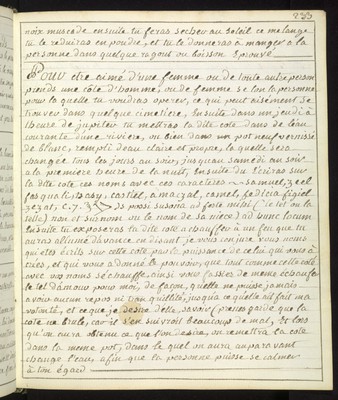 233
noix muscade ensuite tu feras secher au soleil ce melange
tu le reduiras en poudre, et tu le donneras a manger a la
personne dans quelque ragout ou boisson Eprouvé
Pour etre aimé d'une femme ou de toute autre person
prends une côte d'homme, ou de femme se lon la personne
pour la quelle tu voudras operer, ce qui peut aisément se
trouver dans quelque cimetiere, Ensuite dans un jeudi à
l'heure de jupiter tu mettras la dite cote dans de l'eau
courante d'une riviere, ou bien dans un pot neuf vernissé
de blanc, rempli d'eau claire et propre, la quelle sera
changée tous les jours au soir, jusqu'au samedi au soir
a la premiere heure de la nuit, Ensuite tu Ecriras sur
la dite cote ces noms avec ces caracteres
castiel, amazal,
Ensuite tu exposeras ta dite cote a chauffer à un feu que tu
auras allumé d'avance, en disant je vous conjure, vous noms
qui etes écrits sur cette cote par la puissance de celui qui vous a
crées, et qui vous a donné le pouvoir, que tout comme cette cote
avec vos noms s'échauffe, ainsi vous fassies de meme échauffer
le tel d'amour pour moi, de façon, quelle ne puisse jamais
avoir aucun repos ni tranquillité, jusqu'a ce quelle ait fait ma
volonté, et ce que je desire d'elle, savoir (prens garde que la
cote ne brule, car il s'en suivroit beaucoup de mal, Et lors
qu'on aura obtenu ce que l'on desire, on remettra la cote
dans le meme pot, dans le quel on aura auparavant
changé l'eau, afin que la personne puisse se calmer
à ton égard